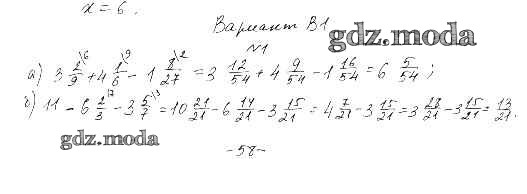 x = 6.
Вариант В1
gdz.moda
№1
а) 3 2/9 \6 + 4 1/6 \9 - 1 8/27 \2 = 3 12/54 + 4 9/54 - 1 16/54 = 6 5/54 ;
б) 11 - 6 2/3 \7 - 3 5/7 \3 = 10 21/21 - 6 14/21 - 3 15/21 = 4 7/21 - 3 15/21 = 3 28/21 - 3 15/21 = 13/21.
gdz.moda
-58-